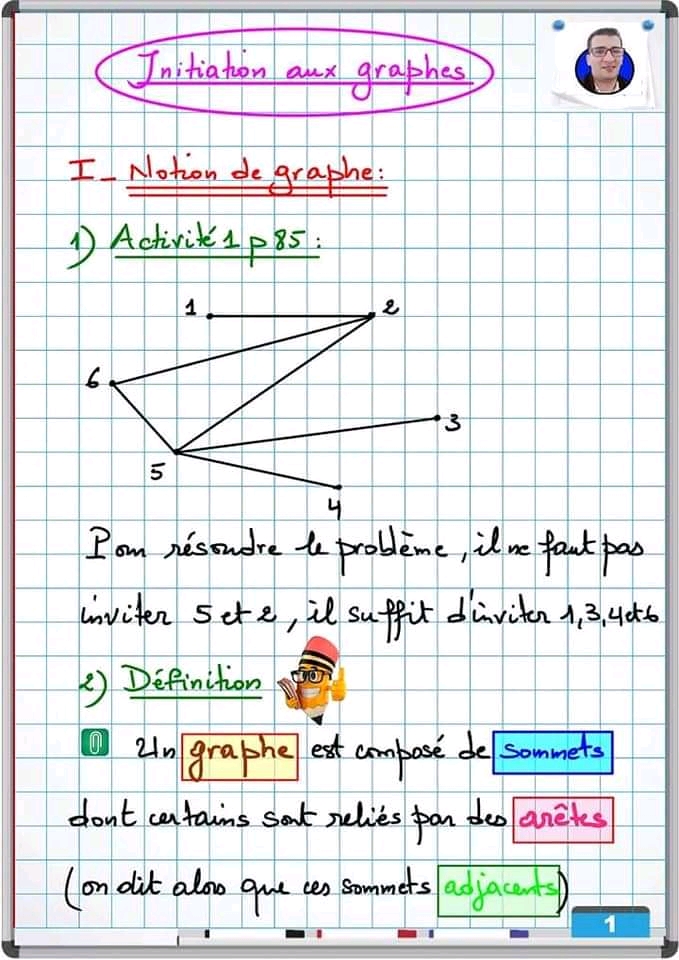 Initiation aux graphes
I- Notion de graphe:
1) Activité 1 p 85 :
1
2
6
3
5
4
Pour résoudre le problème, il ne faut pas
inviter 5 et 2, il suffit d'inviter 1,3,4 et 6
2) Définition
Un graphe est composé de sommets
dont certains sont reliés par des arêtes
(on dit alors que ces sommets adjacents)
1